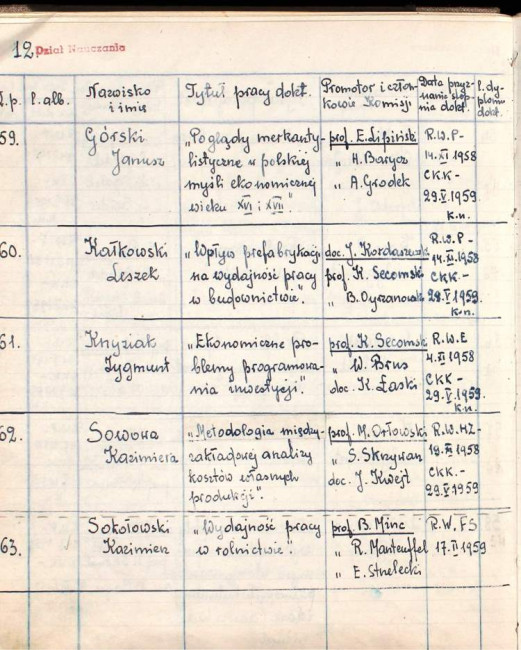 12 Dział Nauczania
L.p. l.alb. Nazwisko i imię Tytuł pracy dokt. Promotor i człon- kowie Komisji Data przyz- nania stop- nia dokt. l.dy- plomu dokt.
59. Górski Janusz
„Poglądy merkanty-
listyczne w polskiej
myśli ekonomicznej
wieku XVI i XVII".
prof. E. Lipiński
„ H. Barycz
„ A. Grodek
R.W.P-
14.XI 1958
CKK-
29.V.1959.
K.n.
60. Kałkowski Leszek
„Wpływ prefabrykacji
na wydajność pracy
w budownictwie".
doc. J. Kordaszewski
prof. K. Secomski
„ B. Oyrzanowski
R.W.P-
14.XI.1958
CKK-
28.V 1959.
K.n.
61. Knyziak Zygmunt
„Ekonomiczne pro-
blemy programowa-
nia inwestycji."
prof. K. Secomski
„ W. Brus
doc. K. Łaski
R.W.E
4.XI 1958
CKK-
29.V.1959.
K.n.
62. Sowowa Kazimiera
„Metodologia między-
zakładowej analizy
kosztów własnych
produkcji".
prof. M. Orłowski
„ S. Skrzywan
doc. J. Kwejt
R.W.HZ-
1958
CKK-
29.V.1959
63. Sokołowski Kazimierz
„Wydajność pracy
w rolnictwie".
prof. B. Minc
„ R. Manteuffel
„ E. Strzelecki
R.W. FS
17.II 1959